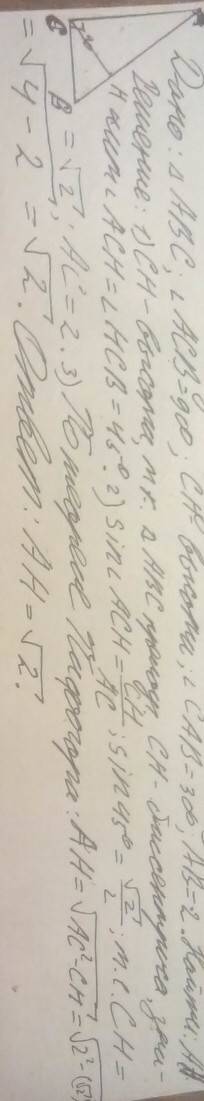 Дано: △ABC; ∠ACB=90°; CH-высота; ∠CAB=30°; AB=2. Найти: AH
Решение: 1) CH-высота, т.к. △ABC прямоуг CH-биссектриса, зна-
чит ∠ACH=∠HCB=45°. 2) sin∠ACH=CH/AC; sin45°=√2/2, т.е. CH=
=√2, AC=2. 3) По теореме Пифагора: AH=√AC²-CH²=√2²-(√2)
=√4-2=√2. Ответ: AH=√2.
C
B
H